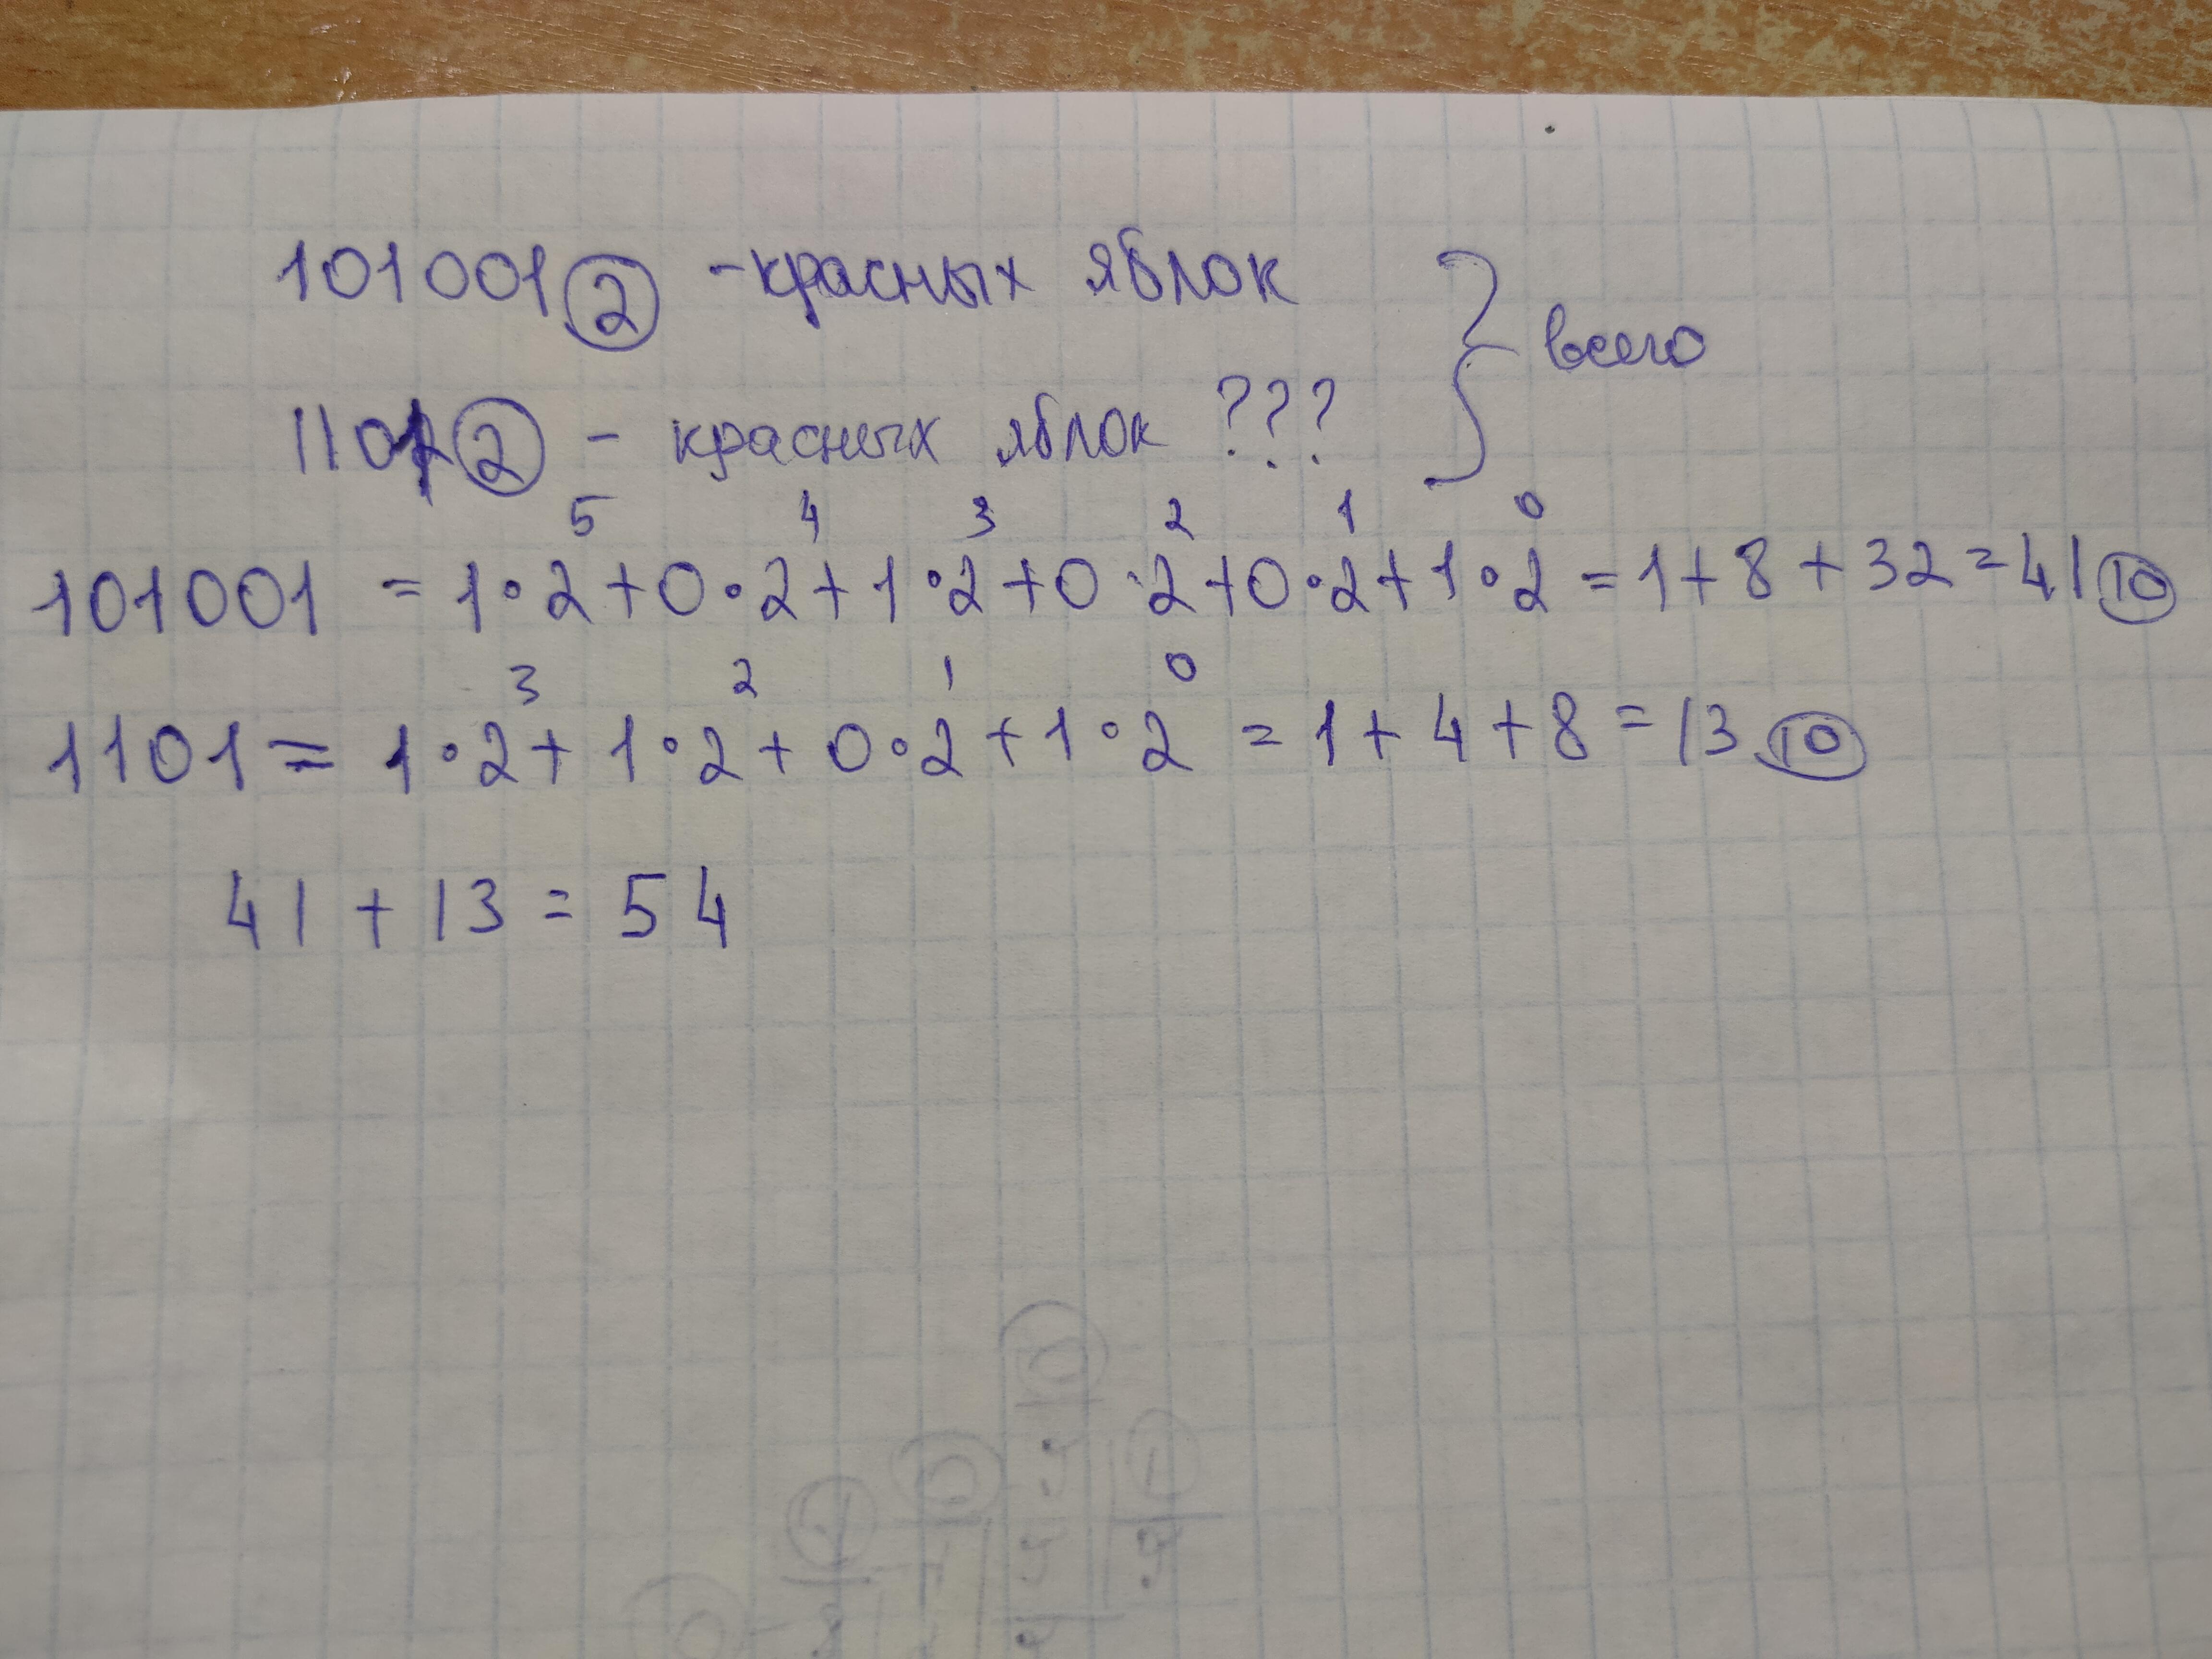 101001② - красных яблок
1101② - красных яблок ???
} всего
101001 = 1·2⁵+0·2⁴+1·2³+0·2²+0·2¹+1·2⁰ = 1+8+32=41⑩
1101 = 1·2³+1·2²+0·2¹+1·2⁰ = 1+4+8=13⑩
41+13=54